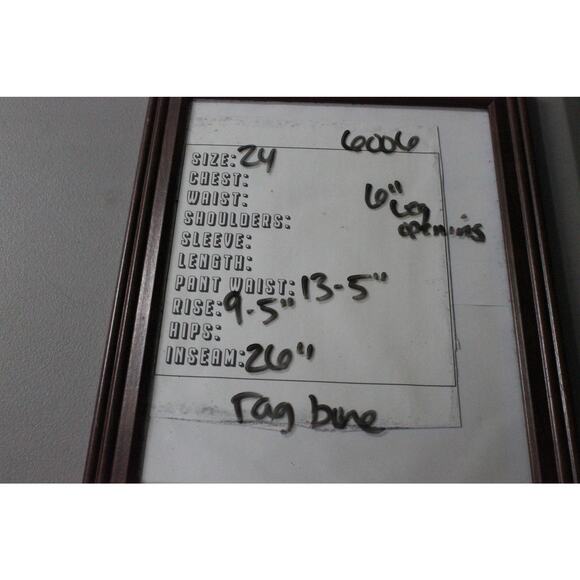 6006
SIZE: 24
CHEST:
WAIST:
6" Leg
SHOULDERS:
openings
SLEEVE:
LENGTH:
PANT WAIST: 13-5"
RISE: 9-5"
HIPS:
INSEAM: 26"
rag bone